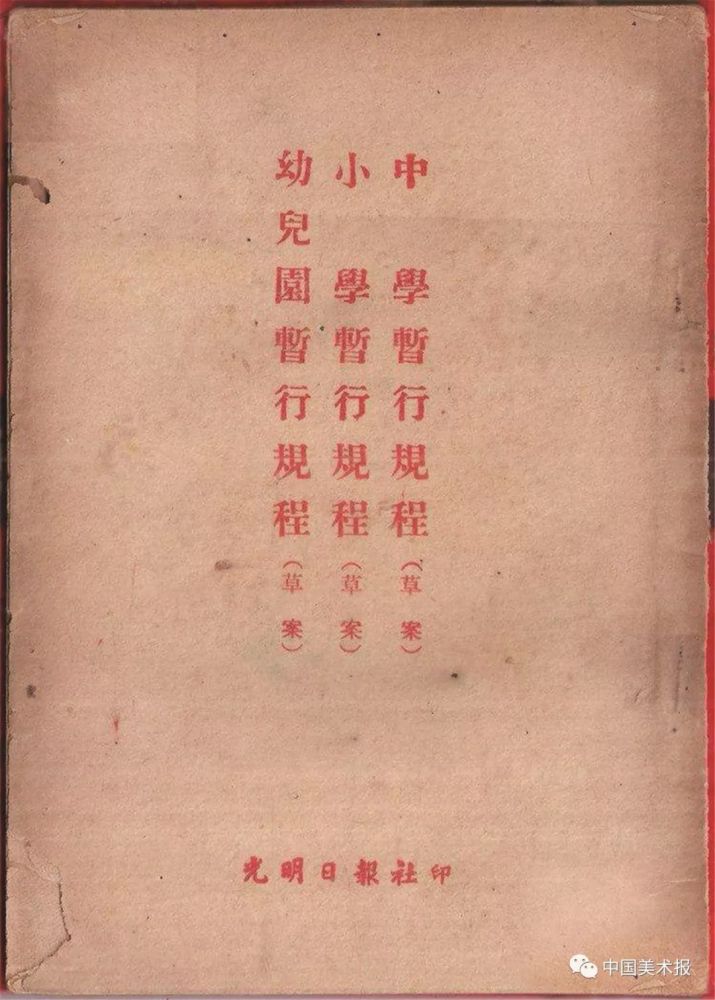 中學暫行規程（草案）
小學暫行規程（草案）
幼兒園暫行規程（草案）
光明日報社印
中国美术报